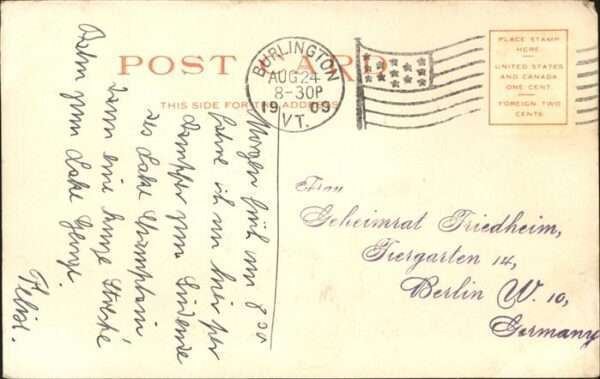 POST CARD
THIS SIDE FOR THE ADDRESS
BURLINGTON
AUG 24
8-30P
1909
VT.
PLACE STAMP
HERE
UNITED STATES
AND CANADA
ONE CENT.
FOREIGN TWO
CENTS.
Morgen früh um 8 00
fahre ich von hier per
Dampfer zum Südende
des Lake Champlain
dann eine kurze Strecke
Bahn zum Lake George.
Felix.
Frau
Geheimrat Friedheim,
Tiergarten 14,
Berlin W. 10,
Germany